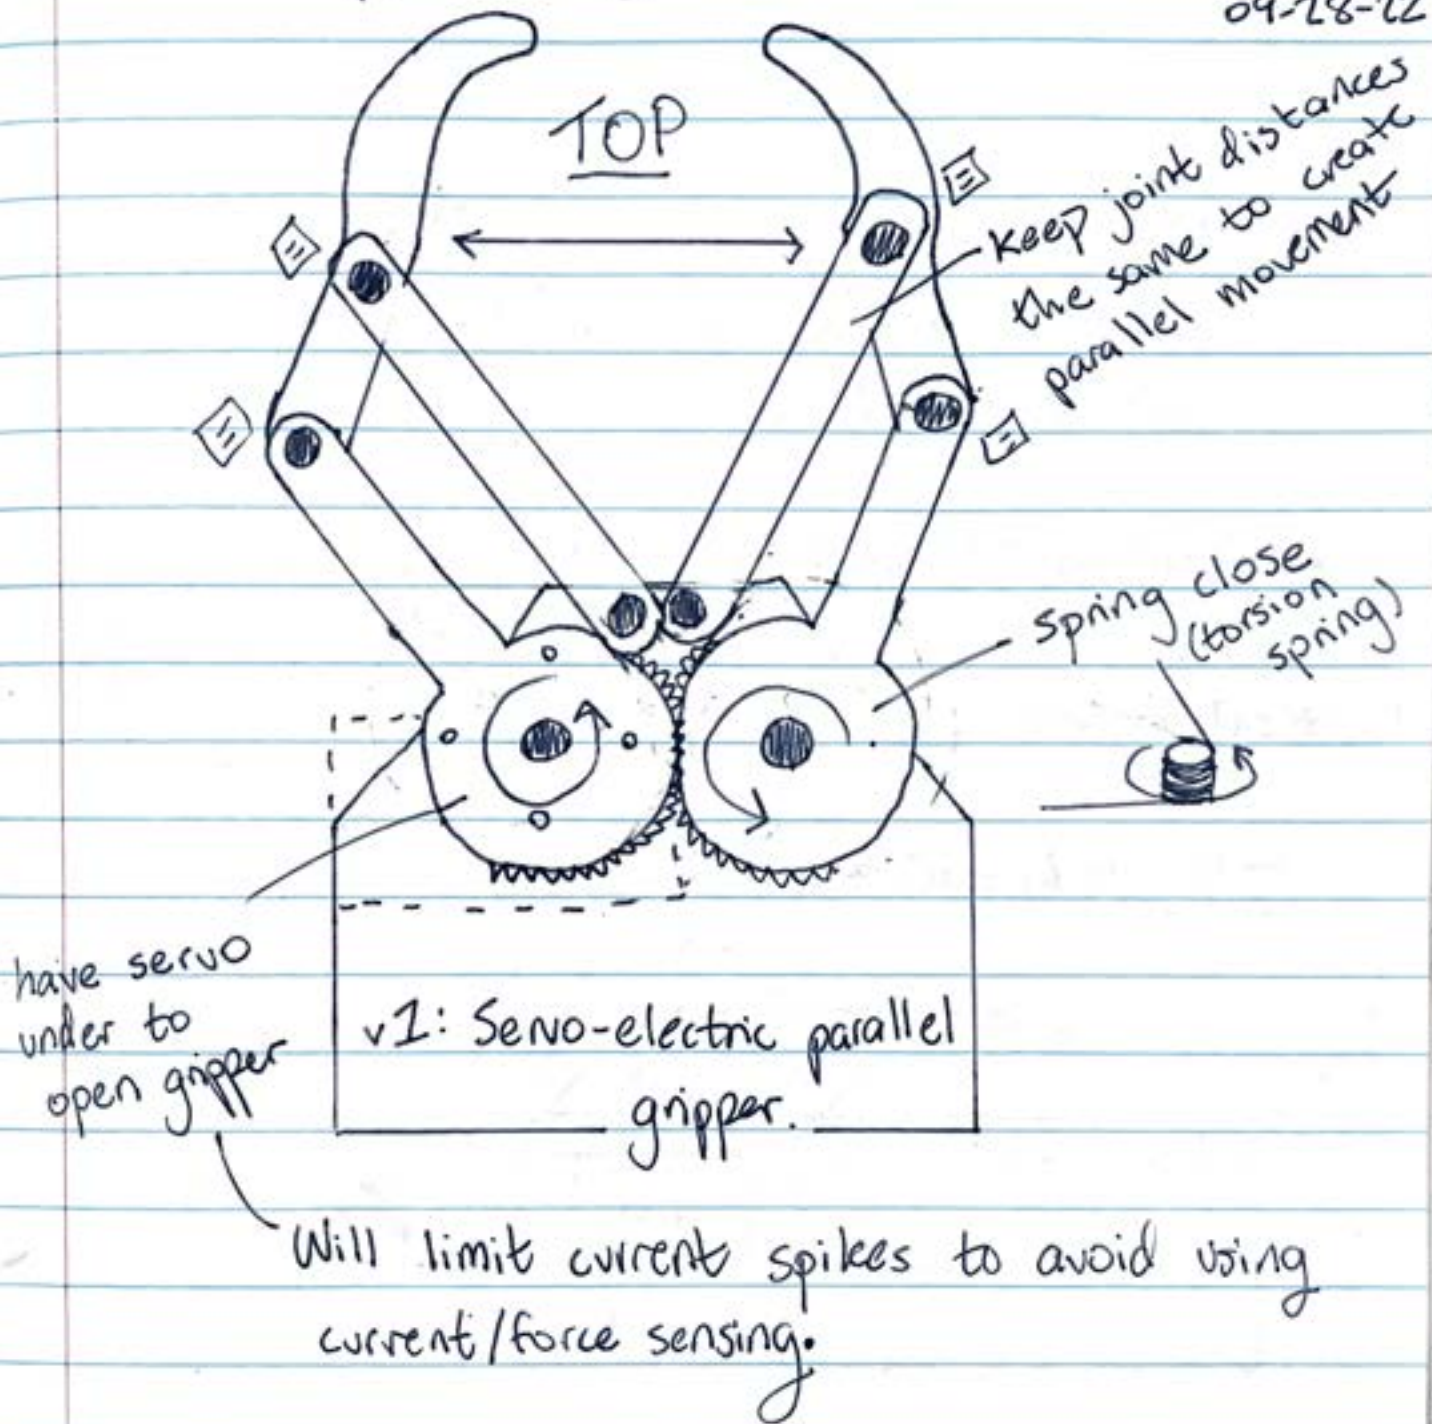 09-28-22
TOP
Keep joint distances
the same to create
parallel movement
spring close
(torsion
spring)
have servo
under to
open gripper
v1: Servo-electric parallel
gripper.
Will limit current spikes to avoid using
current/force sensing.